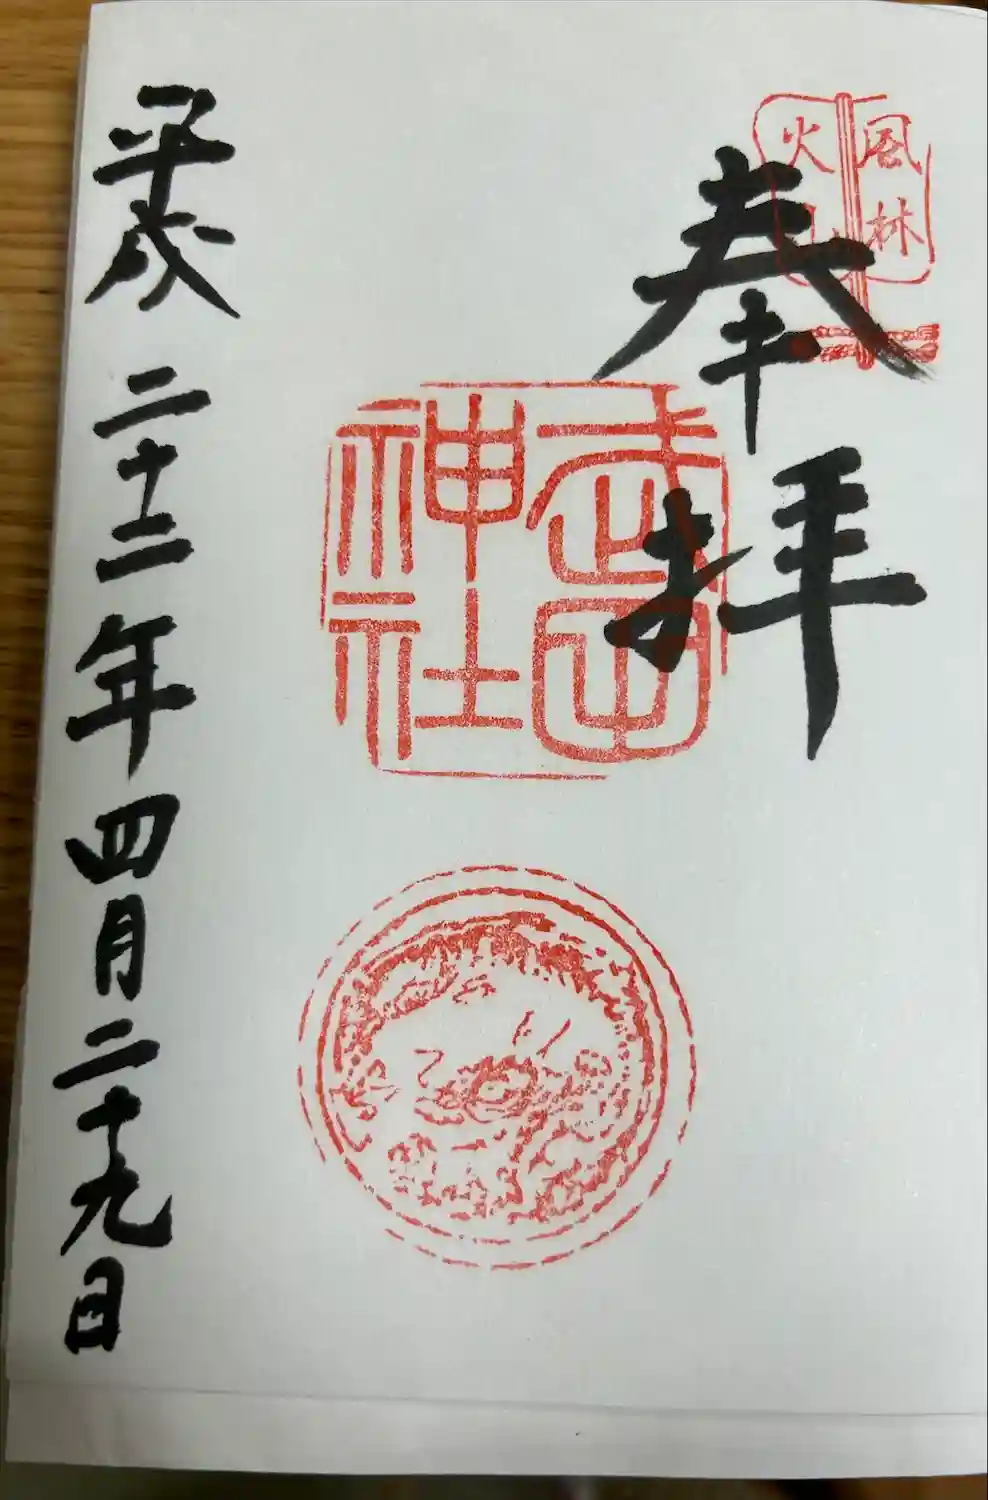 風林
火山
奉拝
武田
神社
平成二十二年四月二十九日